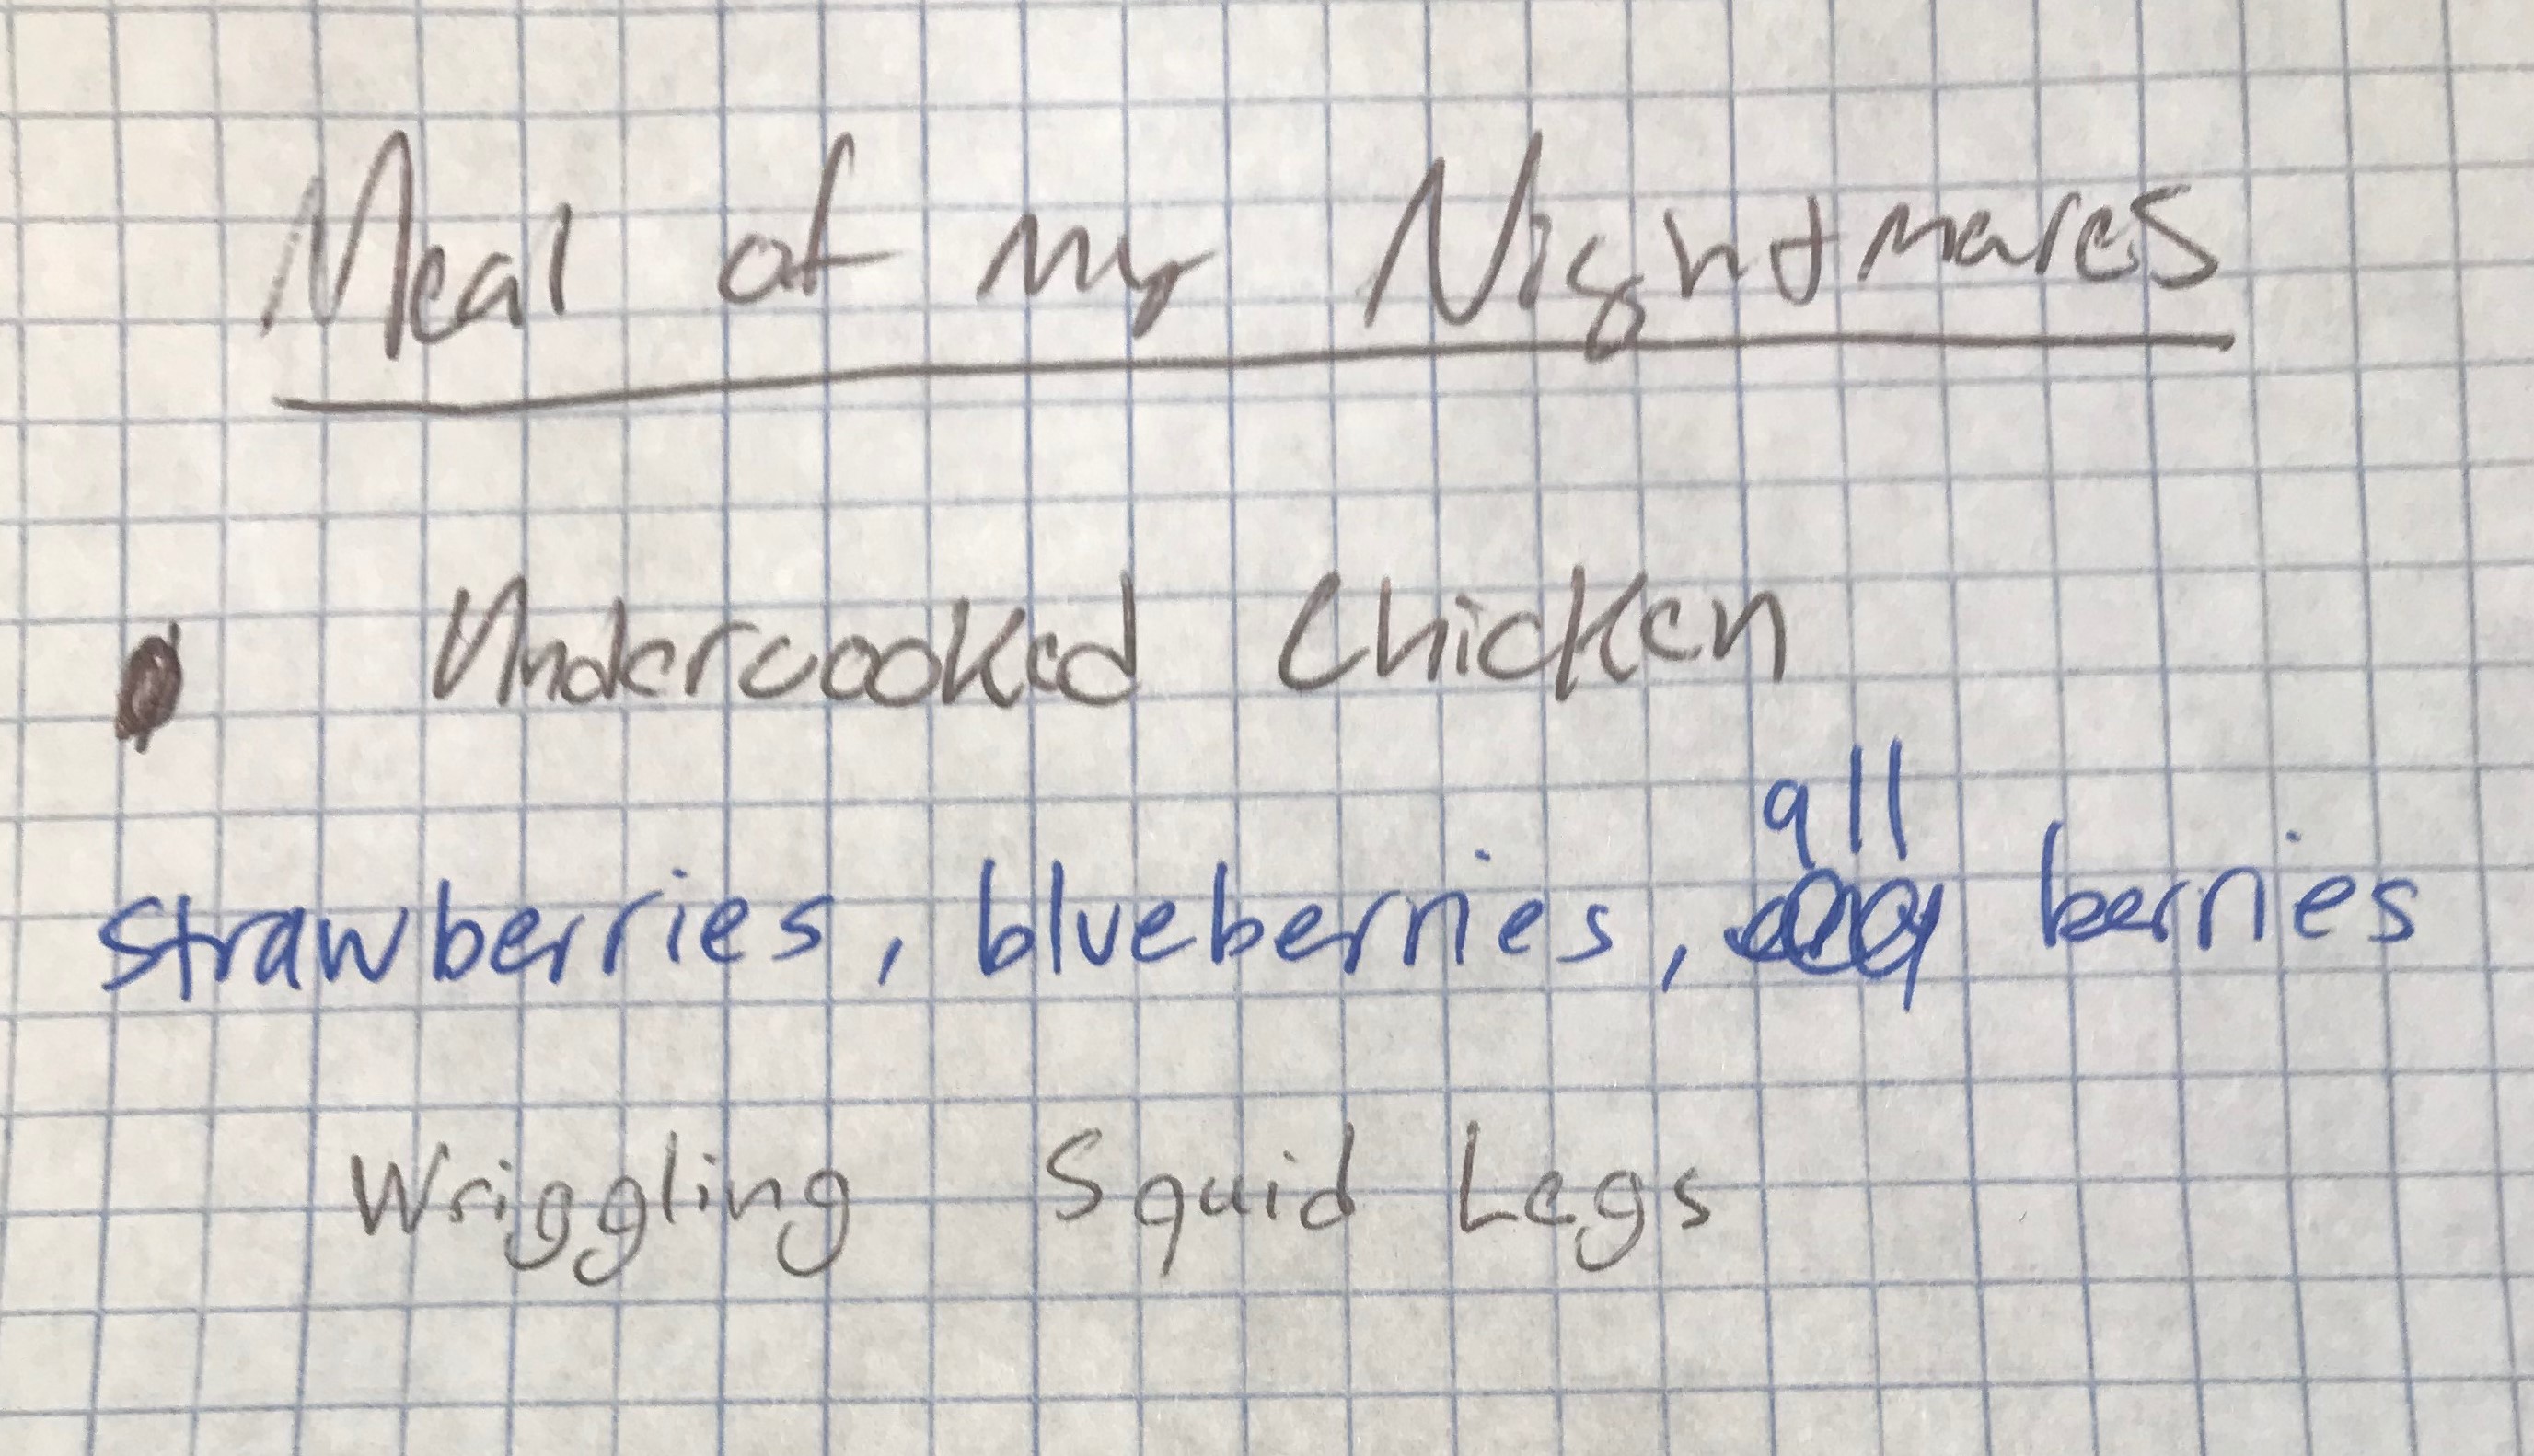 Meal of my Nightmares
• Undercooked Chicken
strawberries, blueberries, all berries
Wriggling Squid Legs